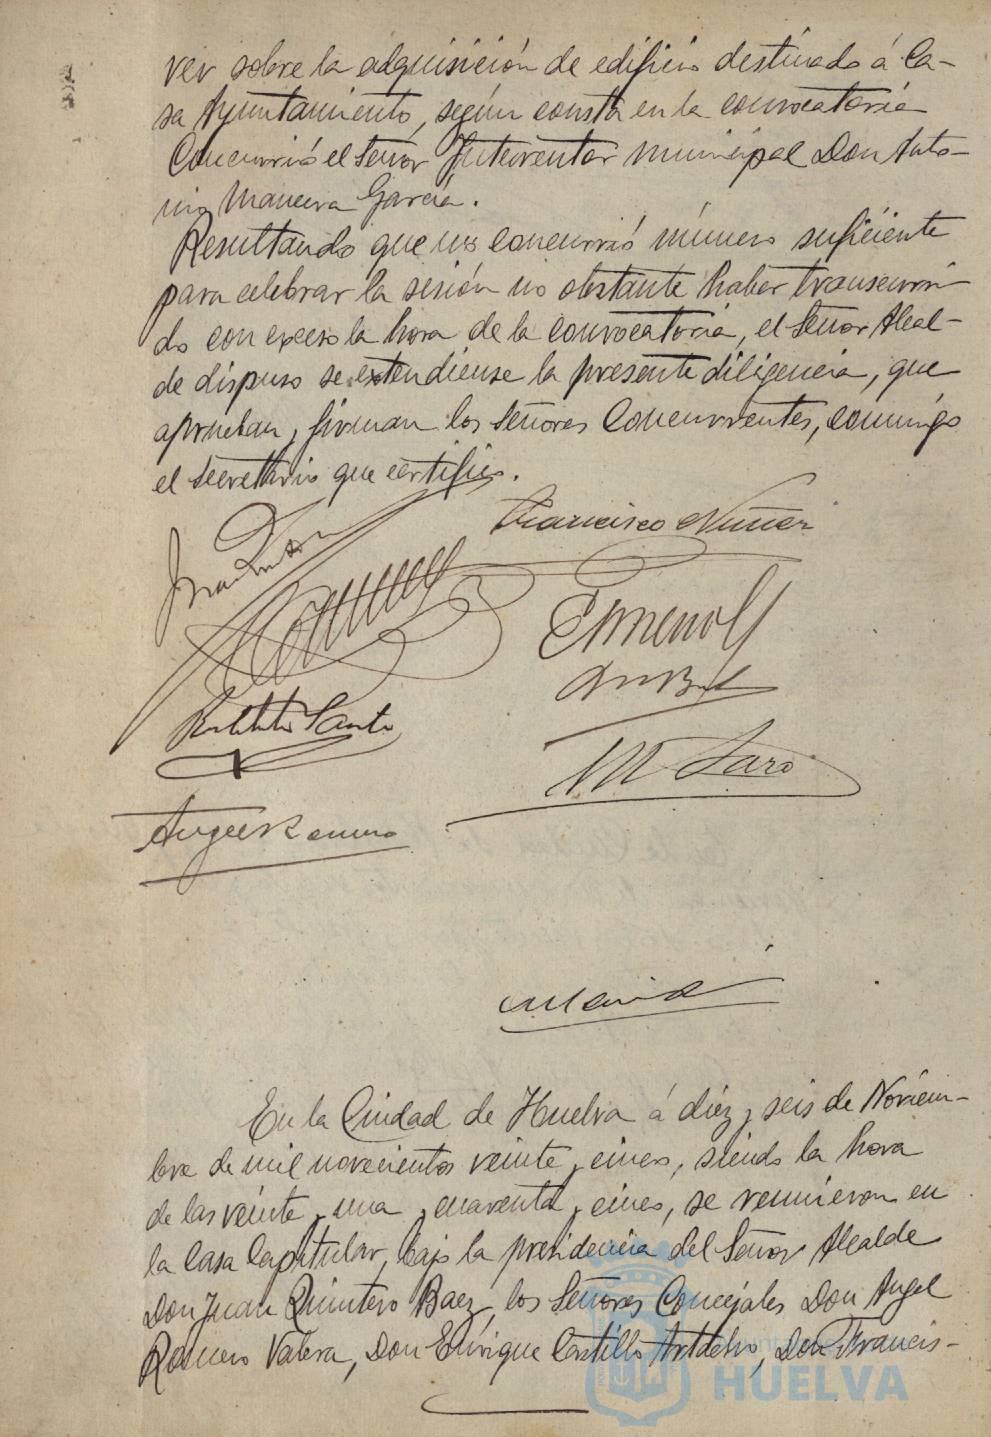 ver sobre la adquisición de edificio destinado á Ca-
sa Ayuntamiento, según consta en la convocatoria
Concurrió el Señor Interventor municipal Don Anto-
nio García.
Resultando que no concurrió número suficiente
para celebrar la sesión no obstante haber transcurri
do con exceso la hora de la convocatoria, el Señor Alcal-
de dispuso se extendiense la presente diligencia, que
aprueban y firman los Señores Concurrentes, conmigo
el Secretario que certifico.
Francisco Nuñez
M Saro
Angel Romero
En la Ciudad de Huelva á diez y seis de Noviem-
bre de mil novecientos veinte y cinco, siendo la hora
de las veinte y una y cuarenta y cinco, se reunieron en
la Casa Capitular, bajo la presidencia del Señor Alcalde
Don Juan Quintero Baez, los Señores Concejales Don Angel
Romero Valera, Don Enrique Castillo Don Francis-
HUELVA